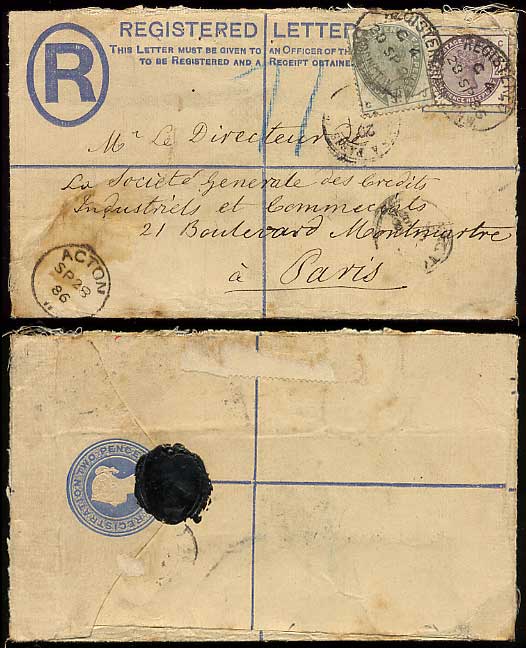 REGISTERED LETTER
THIS LETTER MUST BE GIVEN TO AN OFFICER OF THE
TO BE REGISTERED AND A RECEIPT OBTAINED
R
REGISTERED
Mr Le Directeur
La Société Generale des Credits
Industriels et Commercials
21 Boulevard Montmartre
à Paris
ACTON
SP 28
86
REGISTRATION TWO PENCE